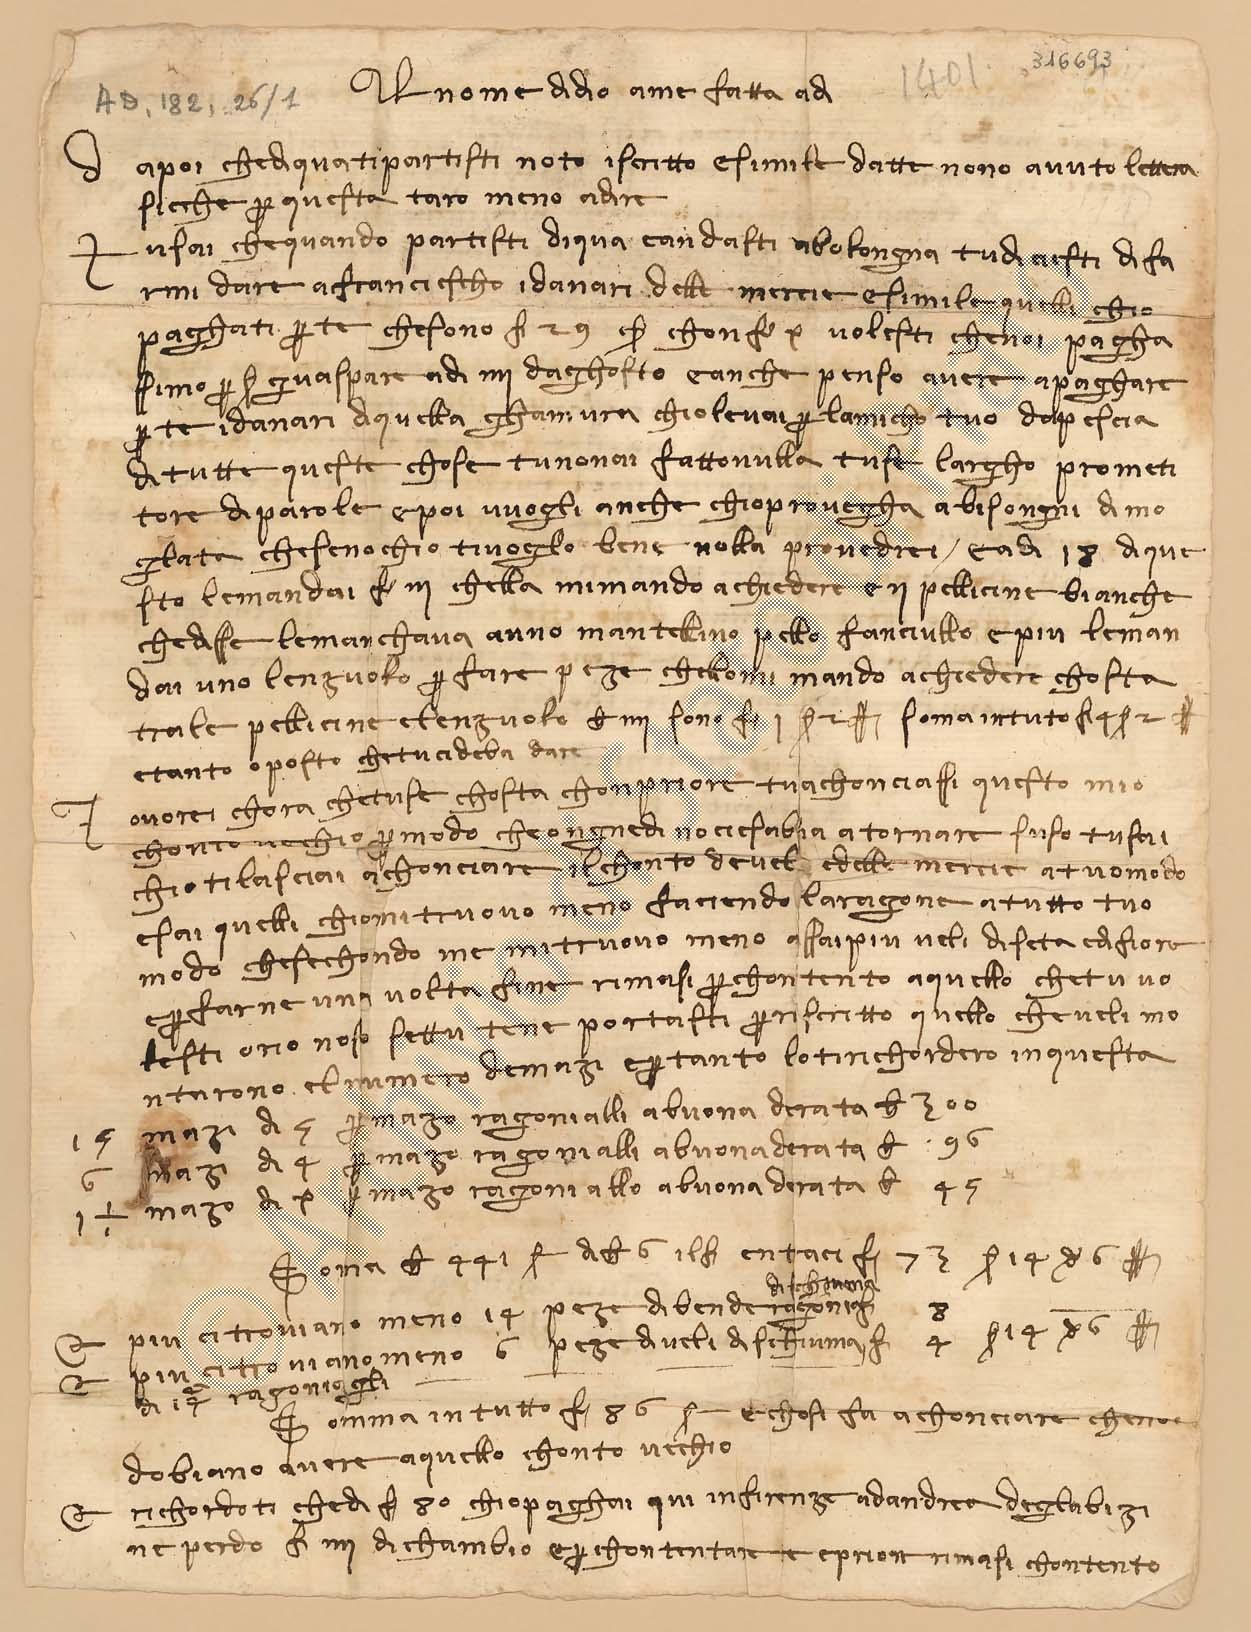 AD, 182, 26/1
1401
316693
Al nome didio ame fatta adi
D apoi chediquatipartisti noto iscritto esimile datte nono avuto lettera
sicche per questa taro meno adire
Tusai chequando partisti diqua eandasti abolongna tudiciesti di fa
rmi dare afranciescho idanari delle mercie esimile quelli chio
paghati per te chesono f 29 chonf volesti chenoi pagha
ssimo per guaspare adi iiii daghosto eanche penso avere apaghare
per te idanari diquella ghamura chiolevai per lamicho tuo dapescia
di tutte queste chose tunonai fattonulla tuse largho prometi
tore diparole epoi vuogli anche chioprovegha abisongni di mo
glata chesenochio tivoglo bene nolla provedrei / eadi 18 dique
sto lemandai f iii chella mimando achiedere e ii pellicine bianche
chedisse lemanchava anno mantellino pello fanciullo epiu leman
dai uno lenzuolo per fare peze chellomi mando achiedere chosta
trale pellicine elenzuolo iiii sono f 1 2 somaintuto f 4 2
etanto oposto chetucideba dare
T ovorei chora chetuse chosta chonpriore tuachonciassi questo mio
chonto vechio per modo cheongnedi nociesabia atornare suso tusai
chiotilasciai achonciare ilchonto develi edelle mercie atuomodo
esai quelli chiomitruovo meno faciendo laragone atutto tuo
modo chesechondo me mitruovo meno assaipiu veli diseta edifiore
eperfarne una volta fine rimasi perchontento aquello chetu vo
lesti orio noso settu tene portasti perriscritto quello cheveli mo
ntarono elnumero demazi epertanto lotirichordero inquesta
15 mazi di 5 per mazo ragonialli abuona derata 300
6 mazi di 4 per mazo ragonialli abuonaderata 96
1 mazo di per mazo ragoniallo abuona derata 45
Soma 441 di 6 ilf entaci f 73 14 6
E piu citroviano meno 14 peze dibende ragonigli dischiuma f 8
E piu citroviano meno 6 peze diveli dischiuma f 4 14 6
di 14 ragoniogli
Somma intutto f 86 echosi fa achonciare chenoi
dobiano avere aquello chonto vechio
E richordoti chedi f 80 chiopaghai qui infirenze adandrea deglabizi
ne perdo f iiii dichambio eper chontentare te eprione rimasi chontento